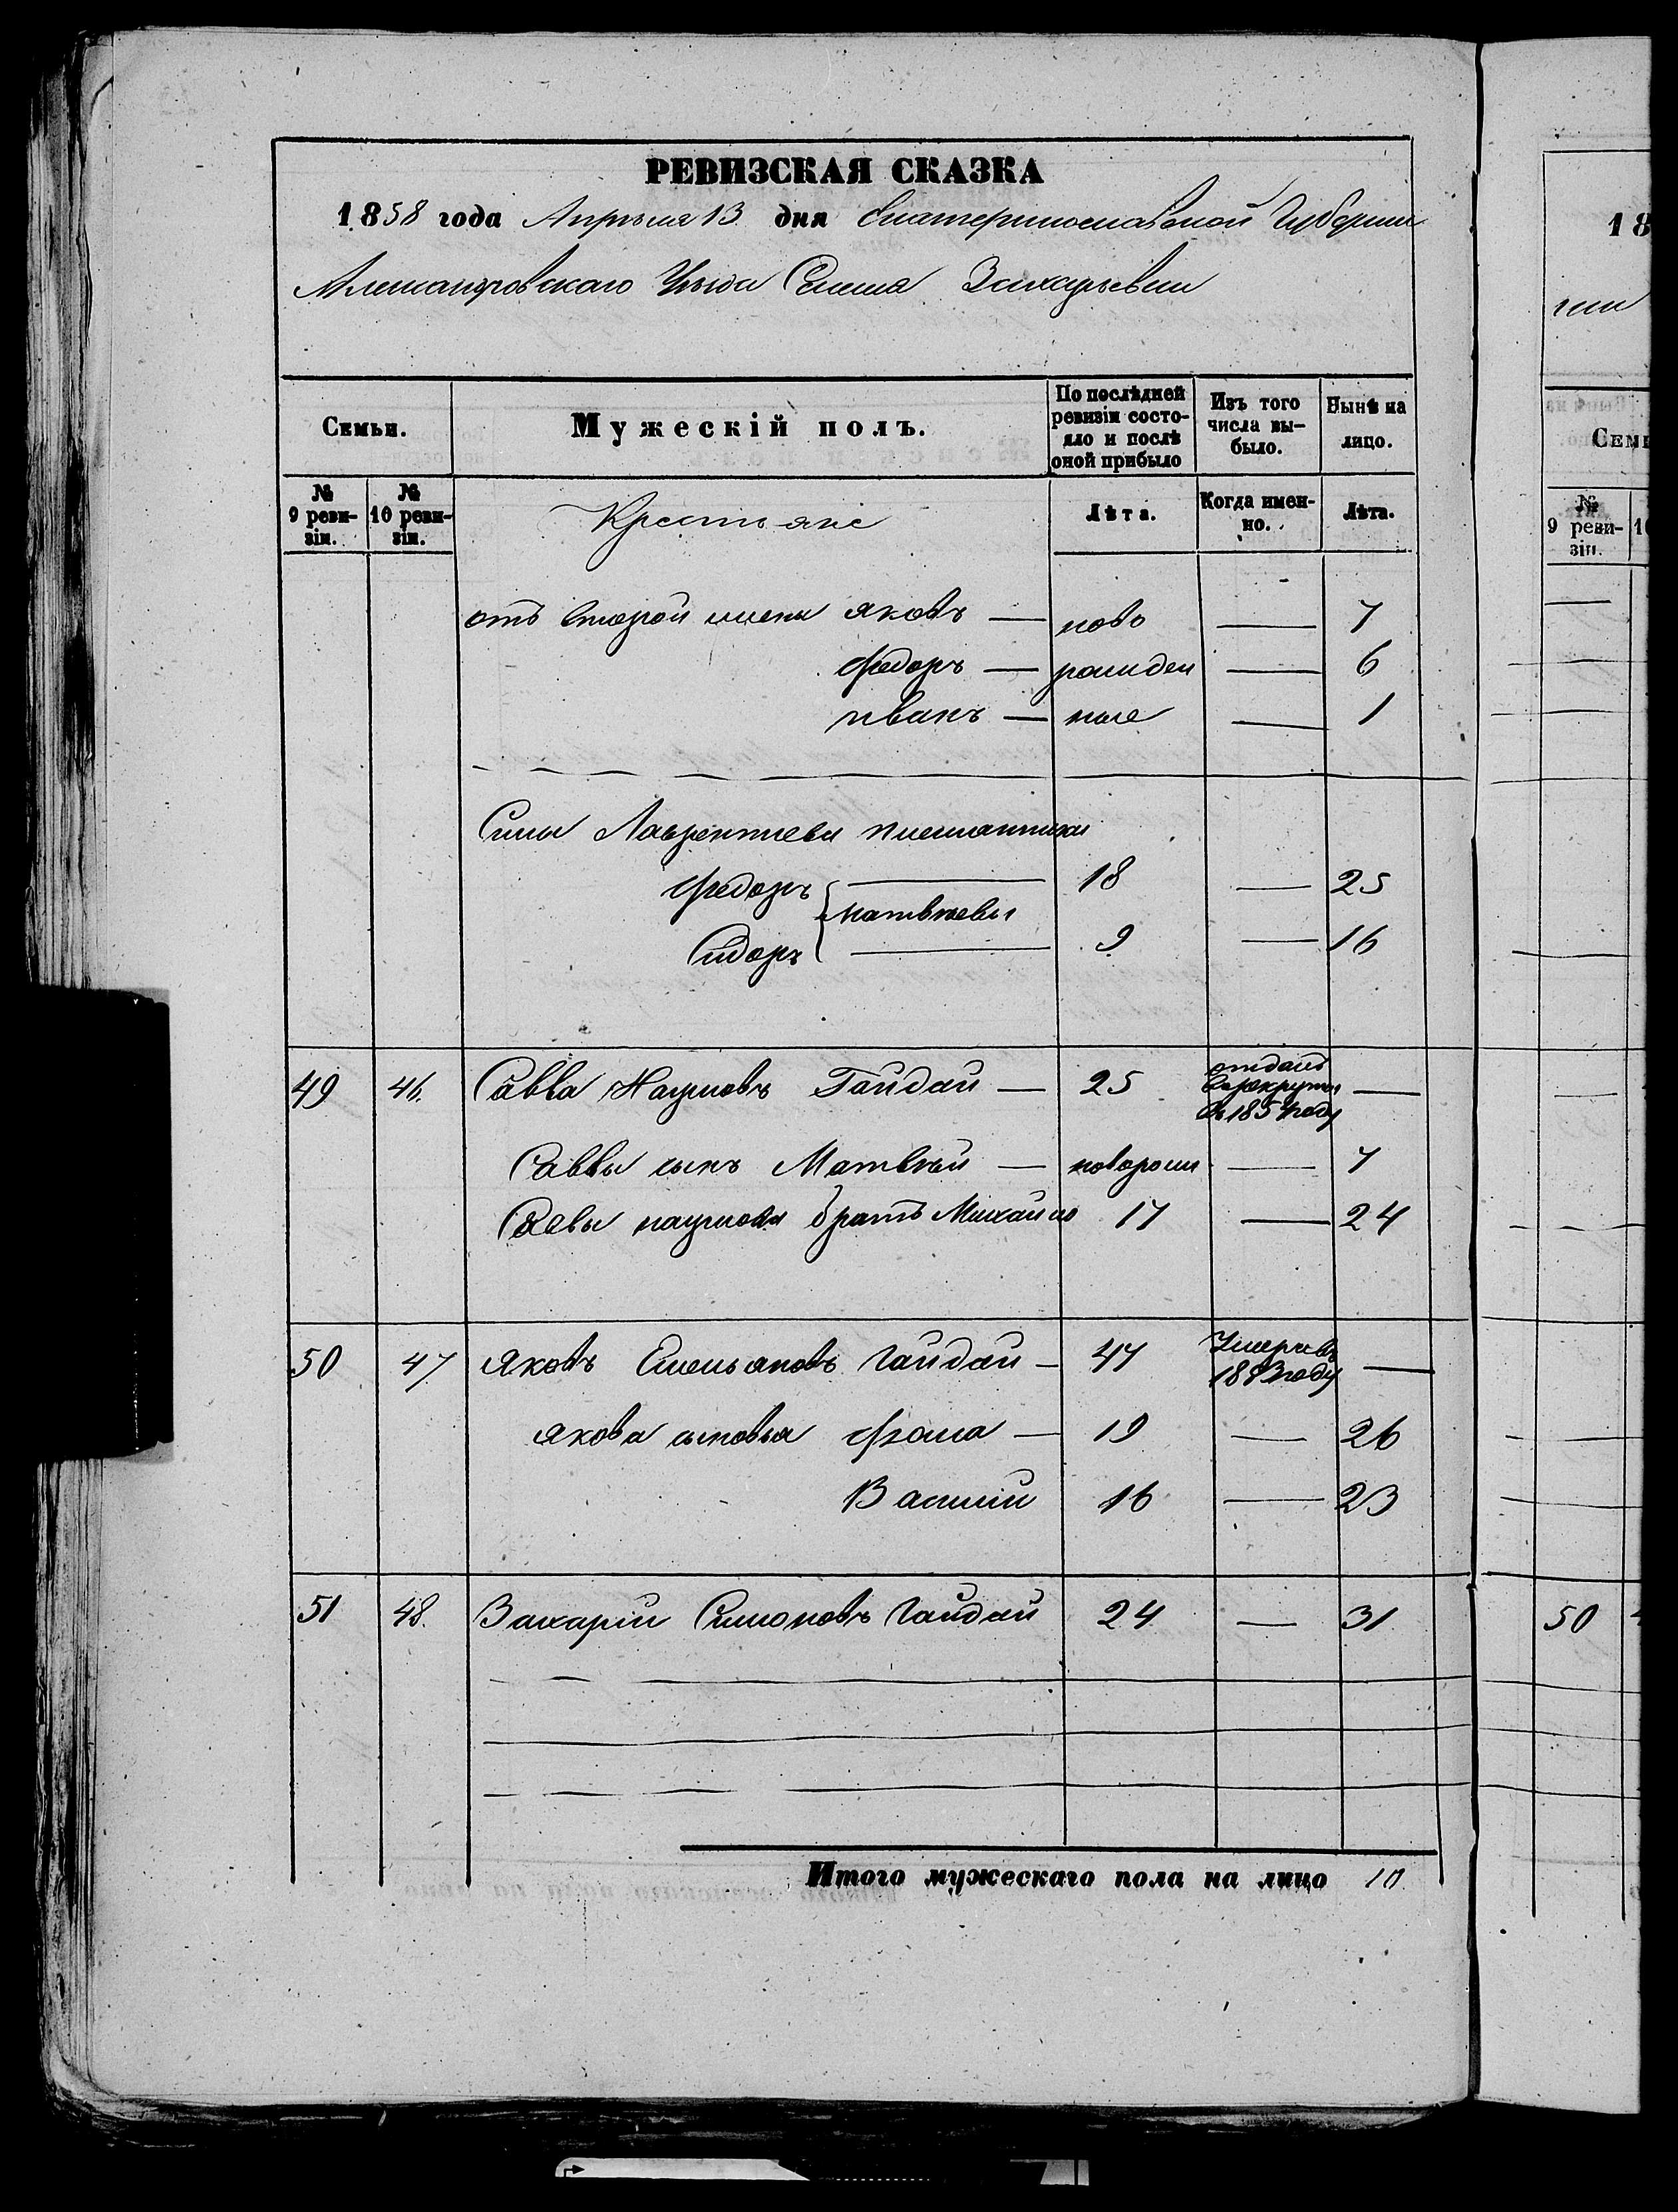 РЕВИЗСКАЯ СКАЗКА
1858 года Апрѣля 13 дня Екатеринославской Губерніи
Александровскаго Уѣзда Села Захарьевки
Семьи.
Мужескій полъ.
По послѣдней ревизіи состояло и послѣ оной прибыло
Изъ того числа выбыло.
Нынѣ на лицо.
№ 9 реви-зіи.
№ 10 реви-зіи.
Крестьяне
Лѣта.
Когда имен-но.
Лѣта.
отъ второй жены Яковъ — ново — 7
Федоръ — рожден — 6
Иванъ — ные — 1
Силы Лаврентіева племянники
Федоръ 18 — 25
Матвѣевы
Сидоръ 9 — 16
49 46. Савва Наумовъ Гайдай — 25 отданъ в рекруты въ 1854 году —
Саввы сынъ Матвѣй — новорож — 7
Саввы наумова братъ Михайло 17 — 24
50 47 Яковъ Емельяновъ Гайдай — 47 Умеръ въ 1853 году —
Якова сыновья Фома — 19 — 26
Василій 16 — 23
51 48. Захарій Симоновъ Гайдай 24 — 31
Итого мужескаго пола на лицо 10
18
Семь
№ 9 реви-зіи.
50